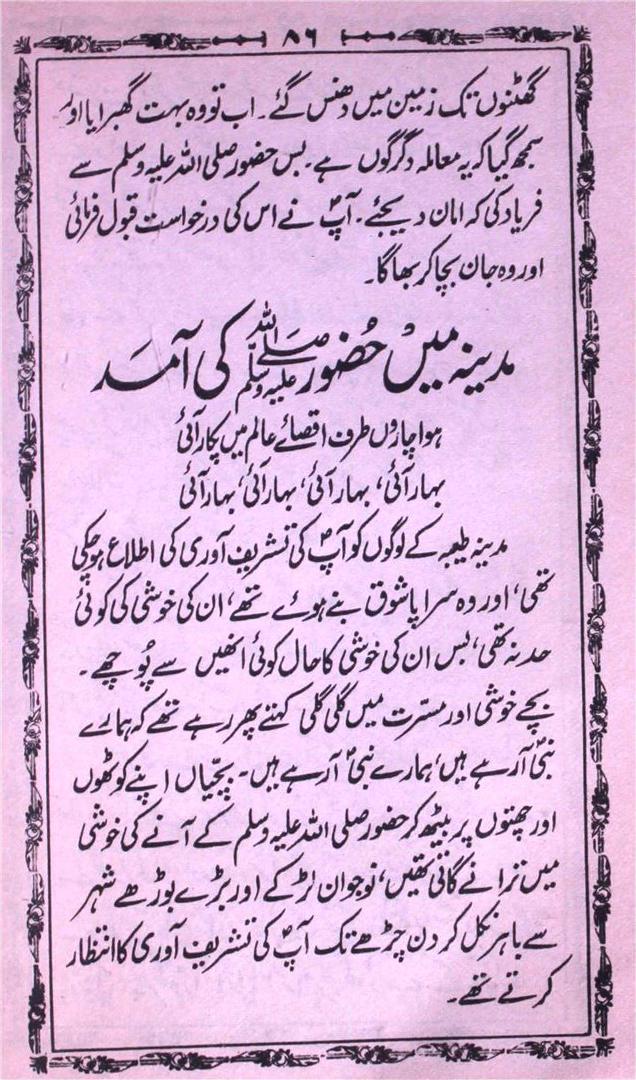 ۸۶
گھٹنوں تک زمین میں دھنس گئے۔ اب تو وہ بہت گھبرایا اور
سمجھ گیا کہ یہ معاملہ دگرگوں ہے۔ بس حضور صلی اللہ علیہ وسلم سے
فریاد کی کہ امان دیجئے۔ آپؐ نے اس کی درخواست قبول فرمائی
اور وہ جان بچا کر بھاگا۔
مدینہ میں حضور صلی اللہ علیہ وسلم کی آمد
ہوا چاروں طرف اقصائے عالم میں پکار آئی
بہار آئی، بہار آئی، بہار آئی، بہار آئی
مدینہ طیبہ کے لوگوں کو آپؐ کی تشریف آوری کی اطلاع ہو چکی
تھی، اور وہ سراپا شوق بنے ہوئے تھے، ان کی خوشی کی کوئی
حد نہ تھی، بس ان کی خوشی کا حال کوئی انھیں سے پُوچھے۔
بچے خوشی اور مسرّت میں گلی گلی کہتے پھر رہے تھے کہ ہمارے
نبیؐ آرہے ہیں، ہمارے نبیؐ آرہے ہیں۔ بچّیاں اپنے کوٹھوں
اور چھتوں پر بیٹھ کر حضور صلی اللہ علیہ وسلم کے آنے کی خوشی
میں ترانے گاتی تھیں، نوجوان لڑکے اور بڑے بوڑھے شہر
سے باہر نکل کر دن چڑھے تک آپؐ کی تشریف آوری کا انتظار
کرتے تھے۔